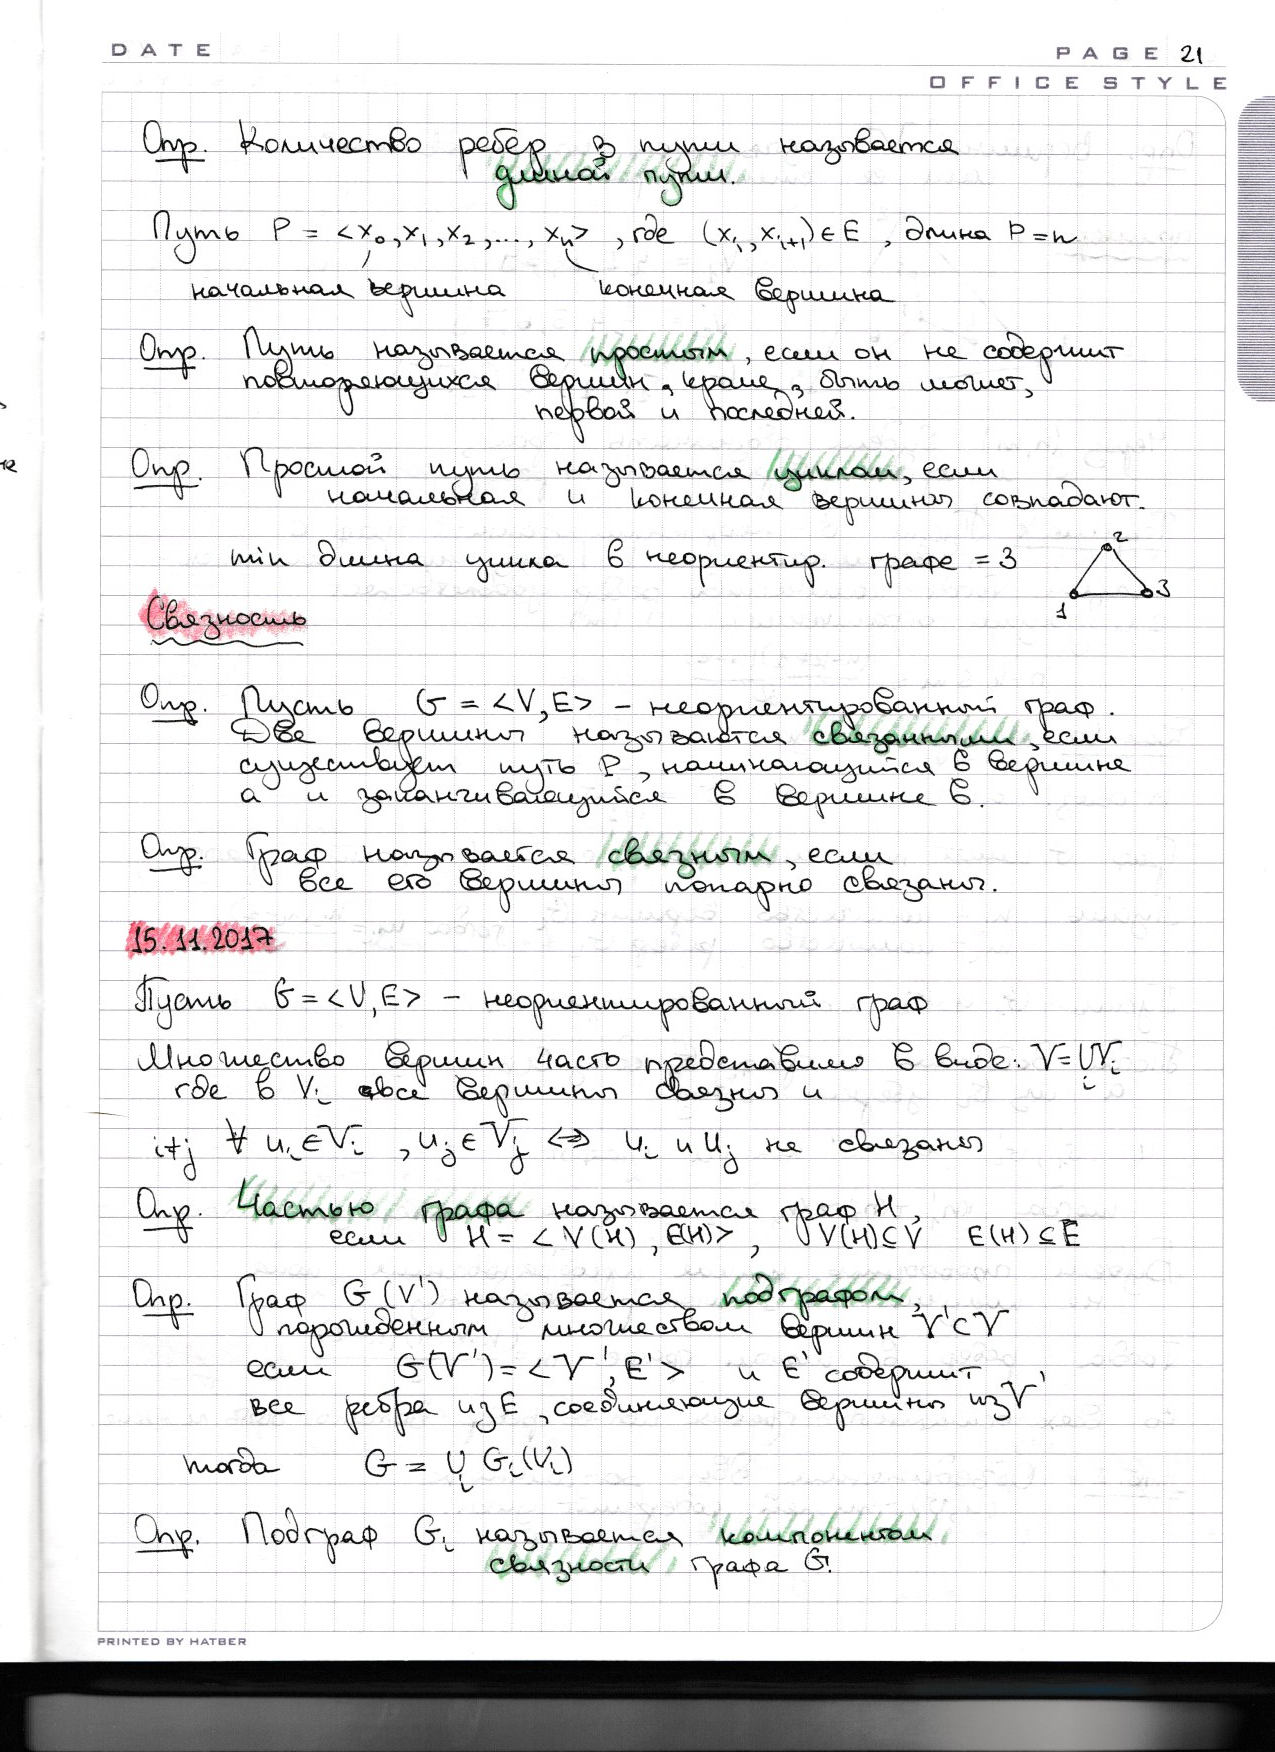 DATE
PAGE 21
OFFICE STYLE
Опр. Количество рёбер в пути называется
длиной пути.
Путь P = <x₀, x₁, x₂, ..., xₙ>, где (xᵢ, xᵢ₊₁) ∈ E, длина P = n
начальная вершина конечная вершина
Опр. Путь называется простым, если он не содержит
повторяющихся вершин, кроме, быть может,
первой и последней.
Опр. Простой путь называется циклом, если
начальная и конечная вершины совпадают.
min длина цикла в неориентир. графе = 3
2
1 3
Связность
Опр. Пусть G = <V, E> – неориентированный граф.
Две вершины называются связанными, если
существует путь P, начинающийся в вершине
a и заканчивающийся в вершине b.
Опр. Граф называется связным, если
все его вершины попарно связаны.
15.11.2017
Пусть G = <V, E> – неориентированный граф
Множество вершин часто представимо в виде: V = ∪Vᵢ
i
где в Vᵢ все вершины связны и
i≠j ∀ uᵢ ∈ Vᵢ, uⱼ ∈ Vⱼ ⇔ uᵢ и uⱼ не связаны
Опр. Частью графа называется граф H,
если H = <V(H), E(H)>, V(H) ⊆ V E(H) ⊆ E
Опр. Граф G(V') называется подграфом,
порожденным множеством вершин V' ⊂ V
если G(V') = <V', E'> и E' содержит
все ребра из E, соединяющие вершины из V'
тогда G = ∪ Gᵢ(Vᵢ)
i
Опр. Подграф Gᵢ называется компонентом
связности графа G.
PRINTED BY HATBER